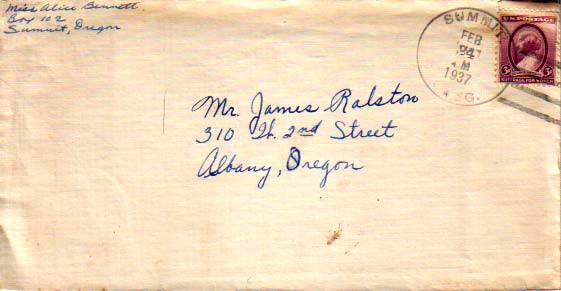 Miss Alice Bennett
Box 102
Summit, Oregon
SUMMIT
FEB
1937
U.S. POSTAGE
3¢ 3¢
SUFFRAGE FOR WOMEN
Mr. James Ralston
310 W. 2nd Street
Albany, Oregon